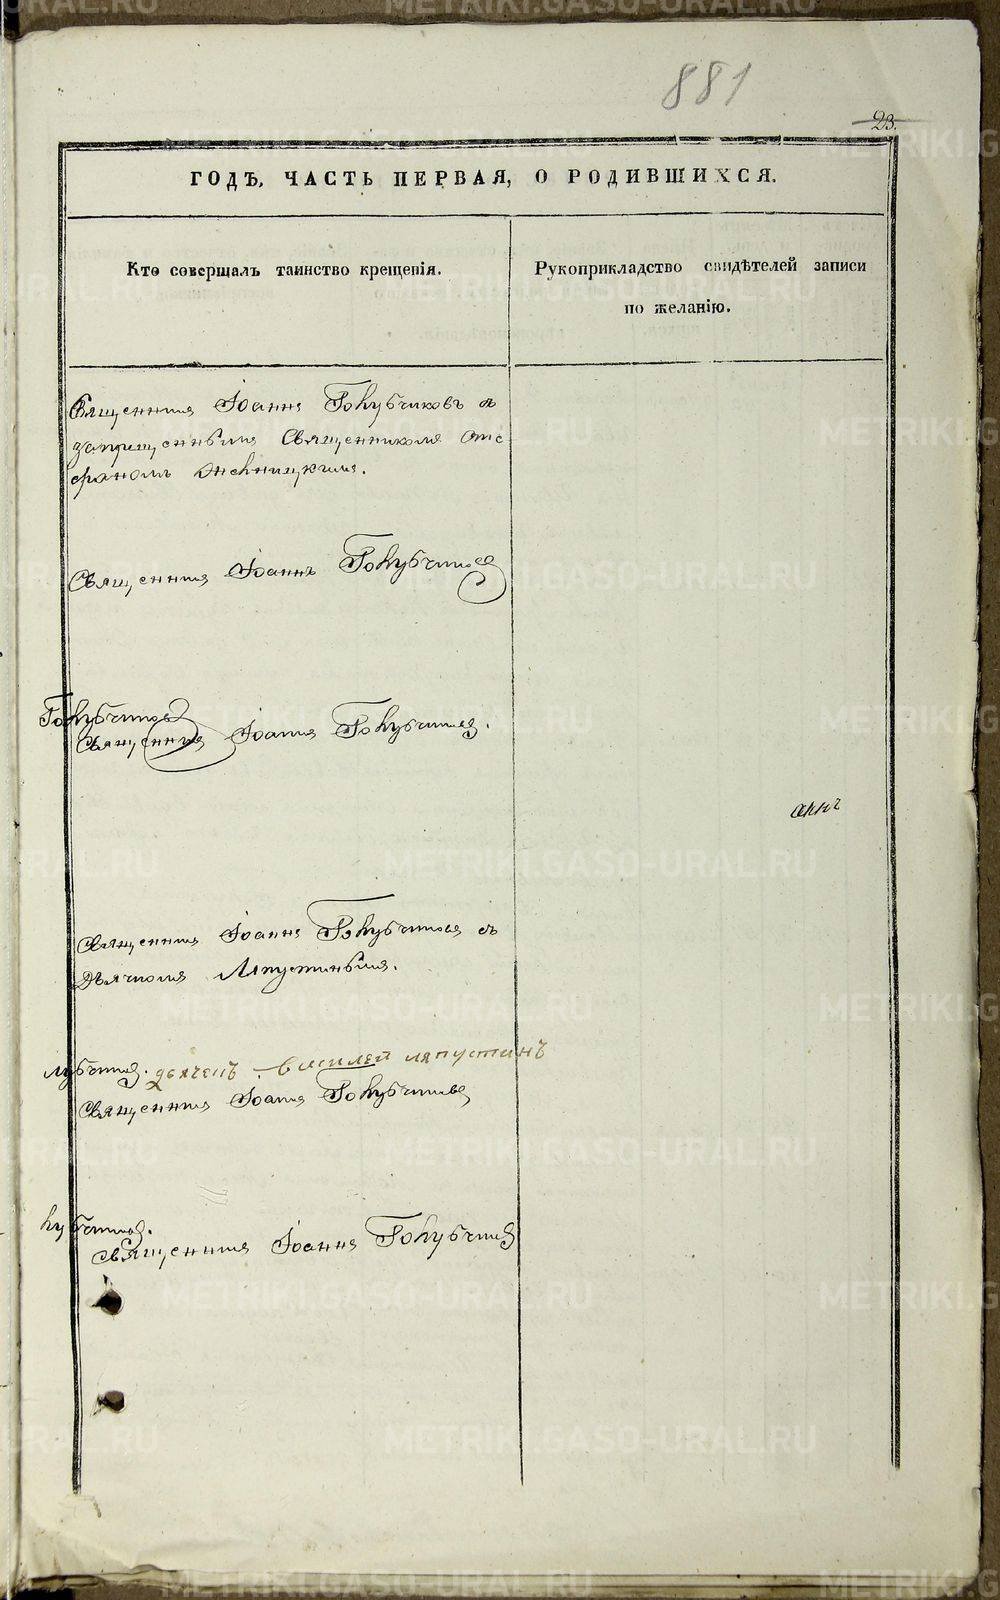 881
23.
ГОДЪ, ЧАСТЬ ПЕРВАЯ, О РОДИВШИХСЯ.
Кто совершалъ таинство крещенія.
Рукоприкладство свидѣтелей записи
по желанію.
Священникъ Іоаннъ Голубчиковъ съ
запрещеннымъ Священникомъ
Священникъ Іоаннъ Голубчиковъ
Голубчиковъ
Священникъ Іоаннъ Голубчиковъ.
Священникъ Іоаннъ Голубчиковъ съ
Дьячкомъ Ляпустинымъ.
лубчиковъ. дьячекъ василей ляпустинъ
Священникъ Іоаннъ Голубчиковъ
лубчиковъ.
Священникъ Іоаннъ Голубчиковъ
METRIKI.GASO-URAL.RU